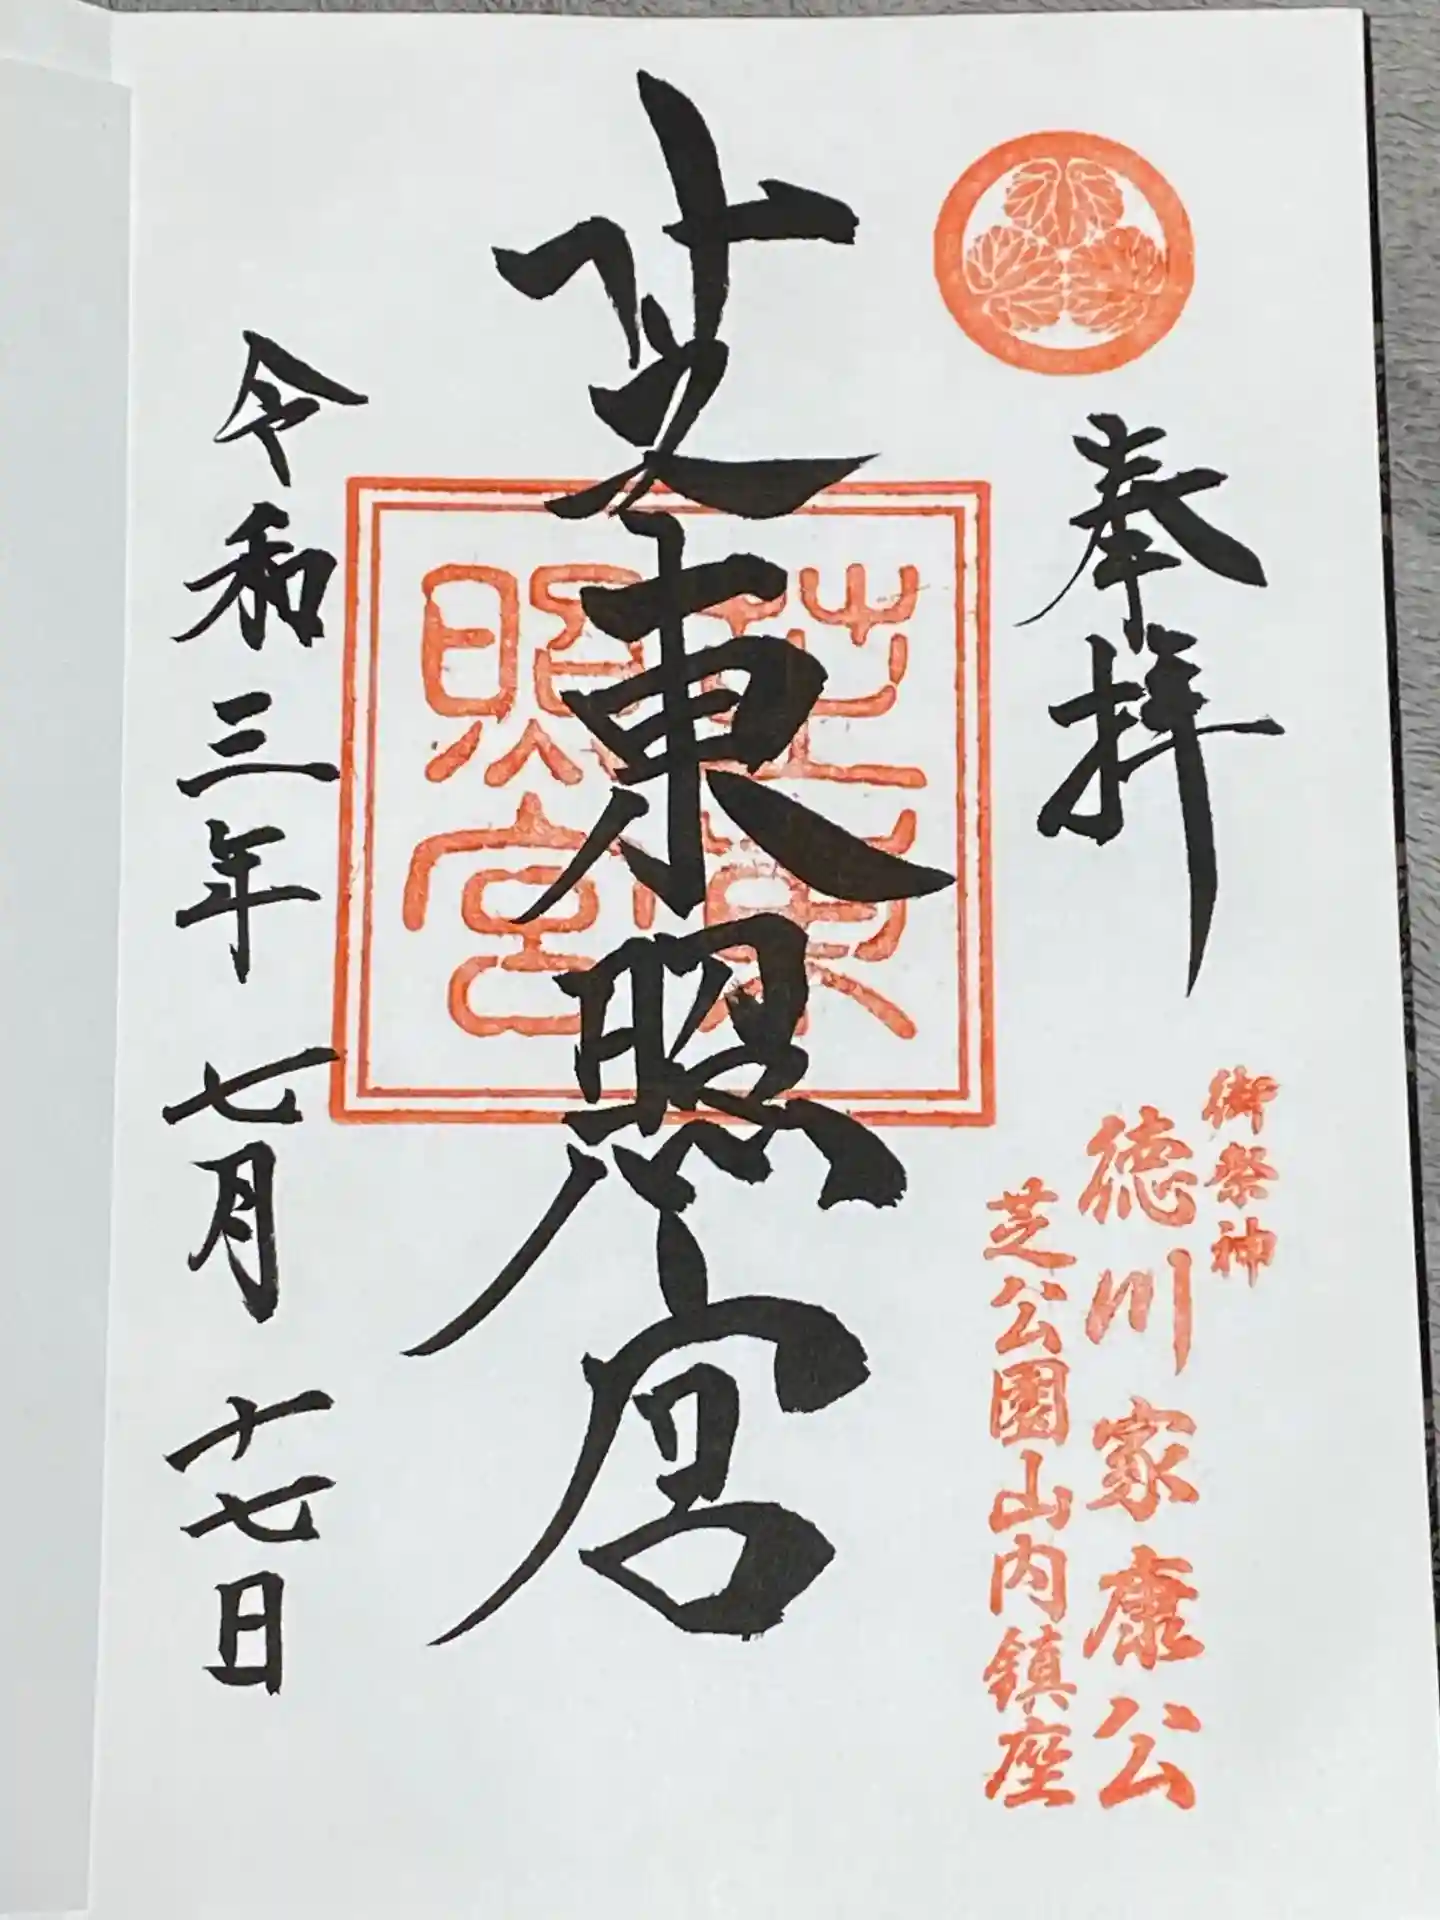 奉拝
御祭神
徳川家康公
芝公園山内鎮座
芝東照宮
芝東
照宮
令和三年七月十七日